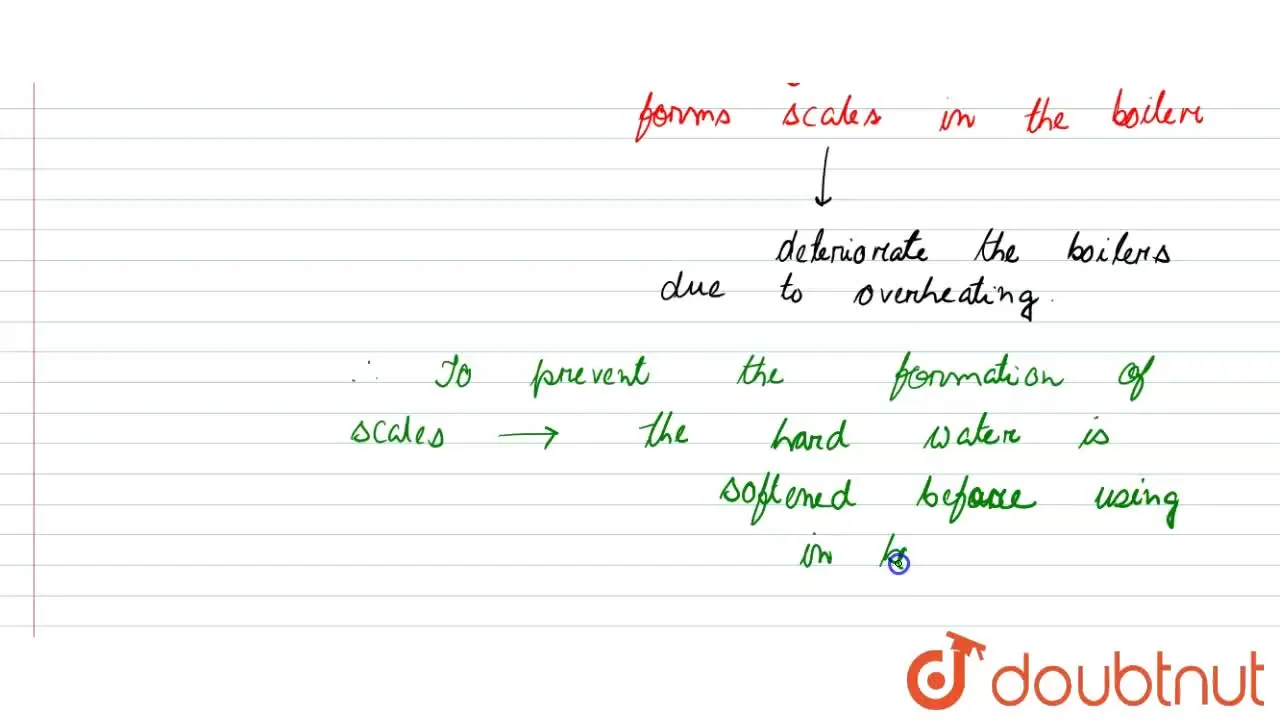 forms scales in the boiler
↓
deteriorate the boilers
due to overheating.
∴ To prevent the formation of
scales → the hard water is
softened before using
in b
doubtnut